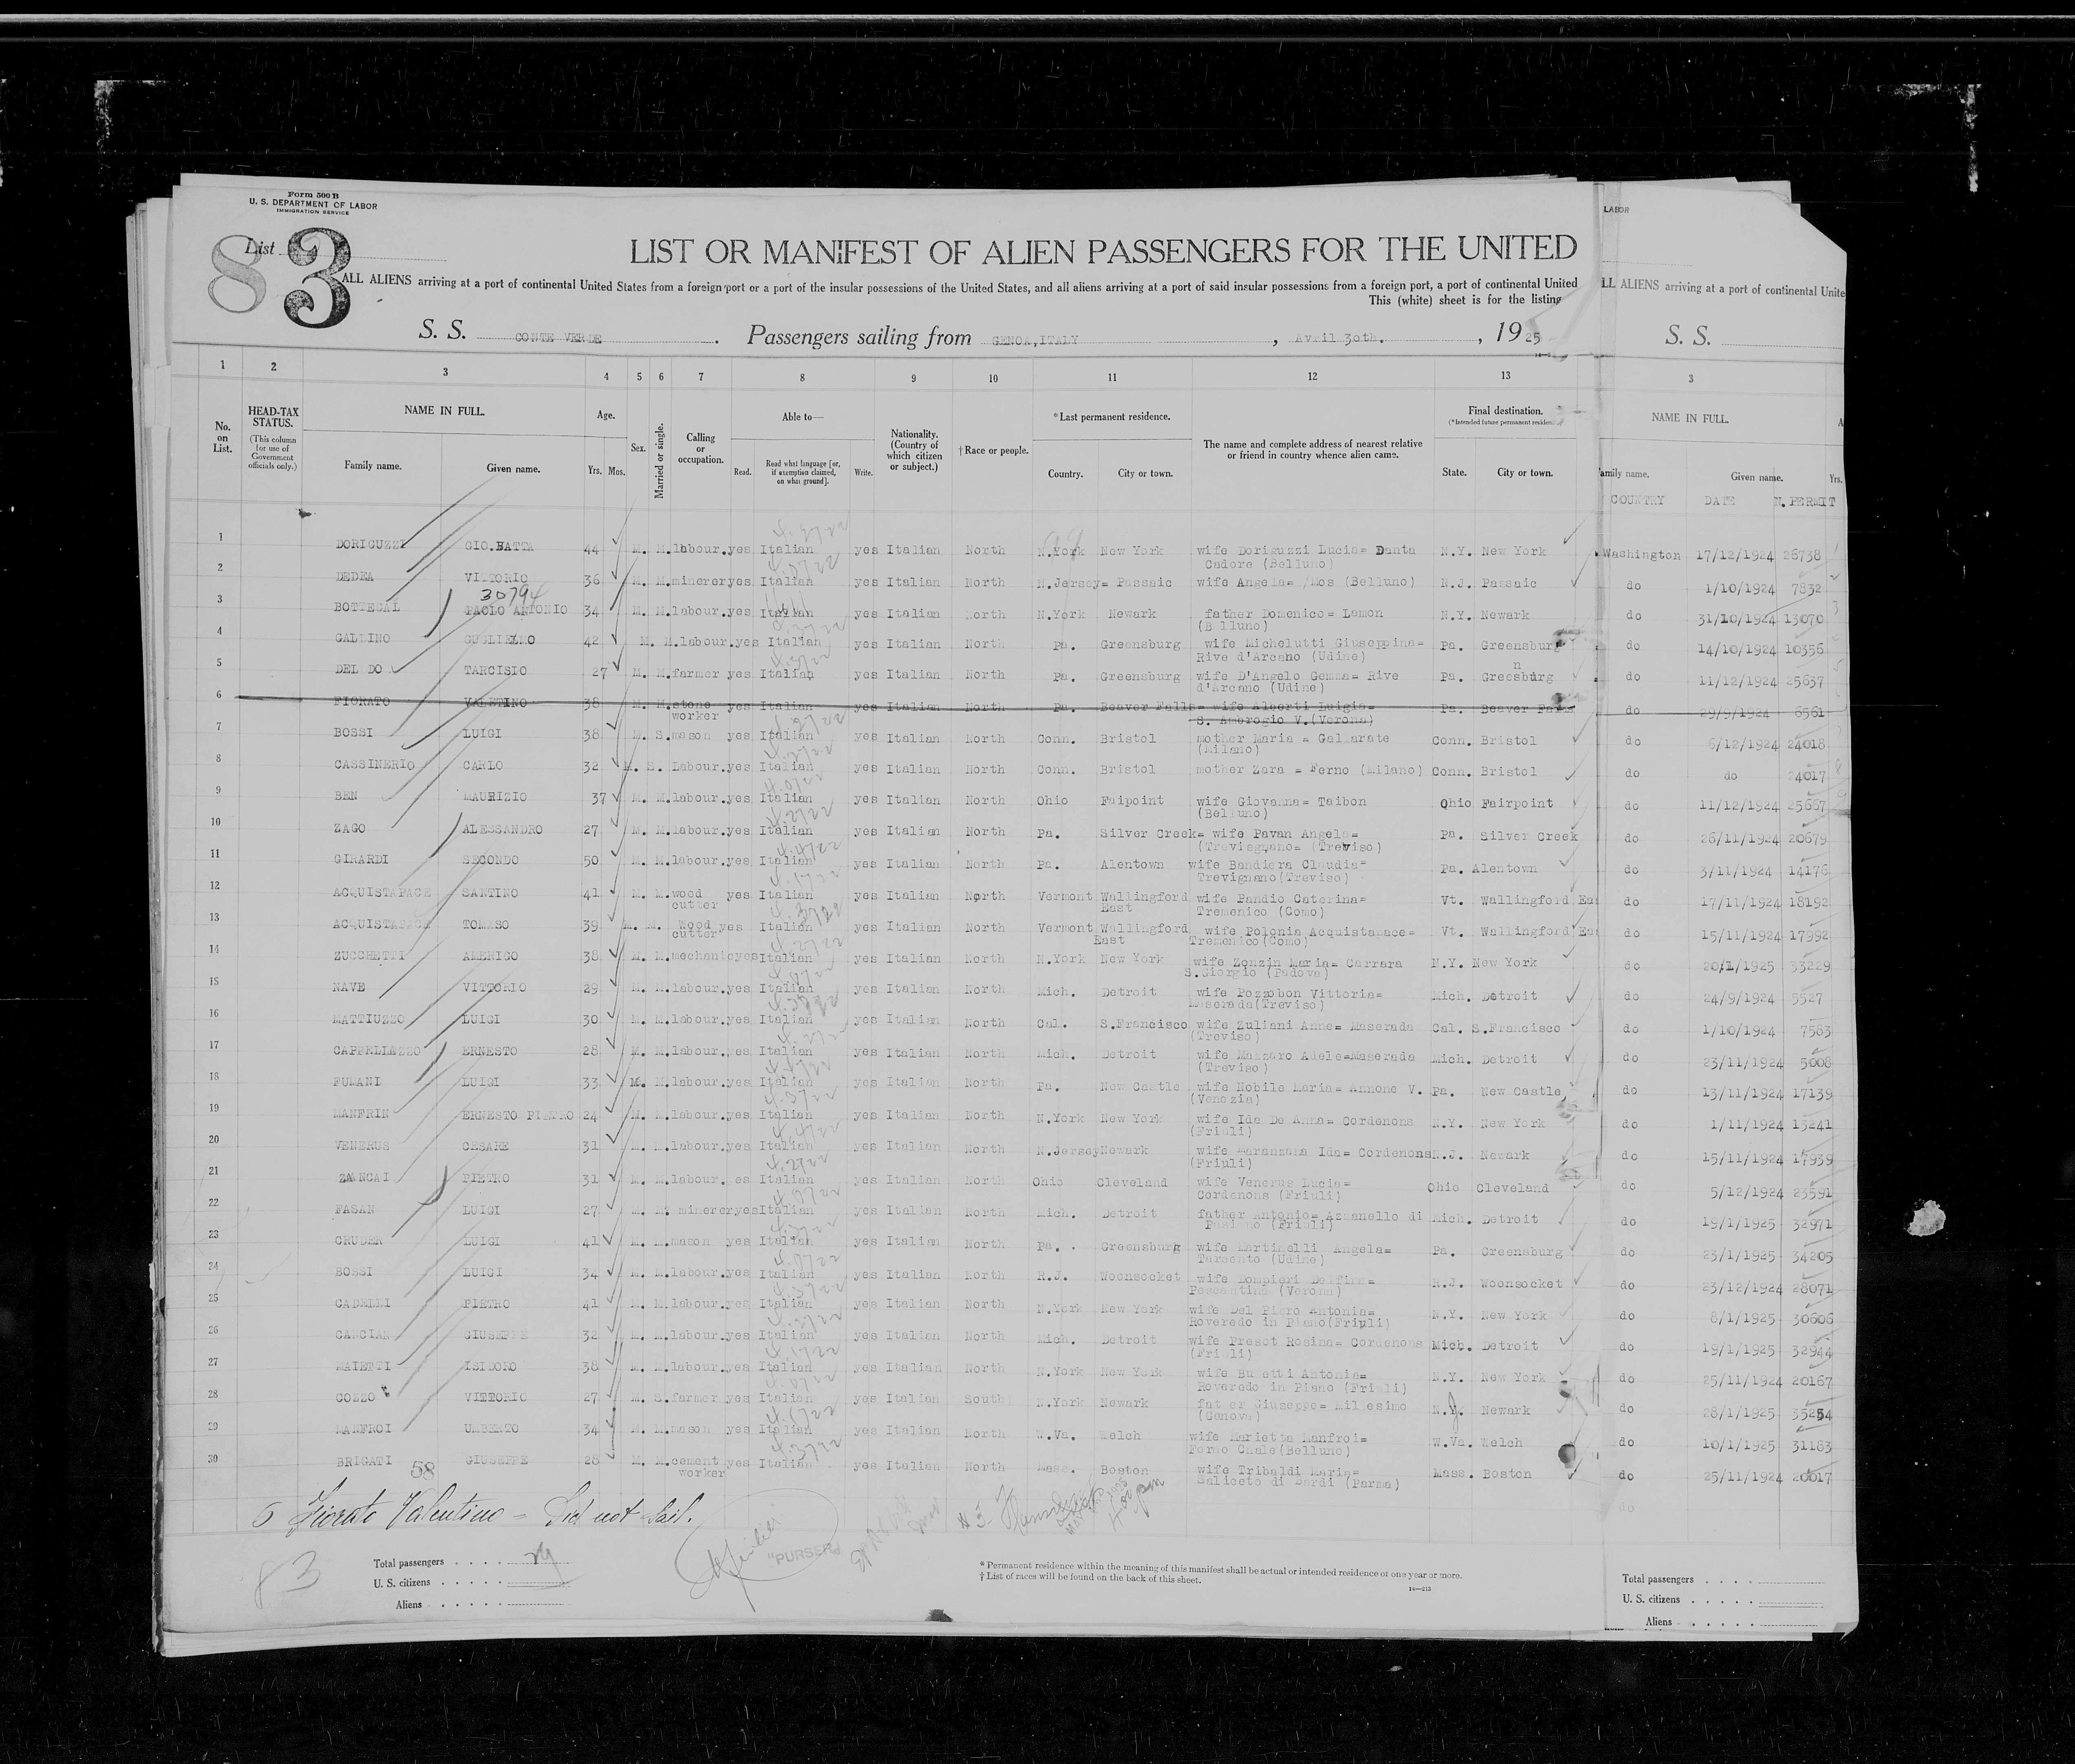 Form 500 B
U. S. DEPARTMENT OF LABOR
IMMIGRATION SERVICE
LABOR
List
83
LIST OR MANIFEST OF ALIEN PASSENGERS FOR THE UNITED
ALL ALIENS arriving at a port of continental United States from a foreign port or a port of the insular possessions of the United States, and all aliens arriving at a port of said insular possessions from a foreign port, a port of continental United
LL ALIENS arriving at a port of continental Unite
This (white) sheet is for the listing
S. S. CONTE VERDE . Passengers sailing from GENOA,ITALY , April 30th. , 1925
S. S.
1 2 3 4 5 6 7 8 9 10 11 12 13 3
No. on List.
HEAD-TAX STATUS.
(This column for use of Government officials only.)
NAME IN FULL.
Family name. Given name.
Age.
Yrs. Mos.
Sex.
Married or single.
Calling or occupation.
Able to—
Read. Read what language [or, if exemption claimed, on what ground]. Write.
Nationality. (Country of which citizen or subject.)
† Race or people.
* Last permanent residence.
Country. City or town.
The name and complete address of nearest relative or friend in country whence alien came.
Final destination.
(* Intended future permanent residence.)
State. City or town.
NAME IN FULL.
amily name. Given name. Yrs.
COUNTRY DATE N. PERMIT
1 DORIGUZZI GIO.BATTA 44 M. M. labour. yes Italian yes Italian North N.York New York wife Doriguzzi Lucia= Danta N.Y. New York Washington 17/12/1924 26738
Cadore (Belluno)
2 DEDEA VITTORIO 36 M. M. minerer yes Italian yes Italian North N.Jersey= Passaic wife Angela= Mos (Belluno) N.J. Passaic do 1/10/1924 7832
30794
3 BOTTEGAL PAOLO ANTONIO 34 M. M. labour. yes Italian yes Italian North N.York Newark father Domenico= Lamon N.Y. Newark do 31/10/1924 13070
(B lluno)
4 GALLINO GUGLIELMO 42 M. M. labour. yes Italian yes Italian North Pa. Greensburg wife Michelutti Giuseppina= Pa. Greensburg do 14/10/1924 10356
Rive d'Arcano (Udine)
5 DEL DO TARCISIO 27 M. M. farmer yes Italian yes Italian North Pa. Greensburg wife D'Angelo Gemma= Rive Pa. Greensburg do 11/12/1924 25637
d'Arcano (Udine)
6 FIORATO VALETINO 38 M. M. stone yes Italian yes Italian North Pa. Beaver Falls= wife Alberti Luigia= Pa. Beaver Falls do 29/9/1924 6561
worker S. Ambrogio V.(Verona)
7 BOSSI LUIGI 38 M. S. mason yes Italian yes Italian North Conn. Bristol mother Maria = Gallarate Conn. Bristol do 6/12/1924 24018
(Milano)
8 CASSINERIO CARLO 32 M. S. Labour. yes Italian yes Italian North Conn. Bristol mother Zara = Ferno (Milano) Conn. Bristol do do 24017
9 BEN MAURIZIO 37 M. M. labour. yes Italian yes Italian North Ohio Faipoint wife Giovanna= Taibon Ohio Fairpoint do 11/12/1924 25667
(Belluno)
10 ZAGO ALESSANDRO 27 M. M. labour. yes Italian yes Italian North Pa. Silver Creek= wife Pavan Angela= Pa. Silver Creek do 26/11/1924 20679
(Trevisgnano= (Treviso)
11 GIRARDI SECONDO 50 M. M. labour. yes Italian yes Italian North Pa. Alentown wife Bandiera Claudia= Pa. Alentown do 3/11/1924 14176
Trevignano(Treviso)
12 ACQUISTAPACE SANTINO 41 M. M. wood yes Italian yes Italian North Vermont Wallingford wife Pandio Caterina= Vt. Wallingford Eas do 17/11/1924 18192
cutter East Tremenico (Como)
13 ACQUISTAPACE TOMASO 39 M. M. Wood yes Italian yes Italian North Vermont Wallingford wife Polonia Acquistapace= Vt. Wallingford Eas do 15/11/1924 17992
cutter East Tremenico(Como)
14 ZUCCHETTI AMERICO 38 M. M. mechanic yes Italian yes Italian North N.York New York wife Zonzin Maria= Carrara N.Y. New York do 20/1/1925 33229
S.Giorgio (Padova)
15 NAVE VITTORIO 29 M. M. labour. yes Italian yes Italian North Mich. Detroit wife Pozzobon Vittoria= Mich. Detroit do 24/9/1924 5527
Maserada(Treviso)
16 MATTIUZZO LUIGI 30 M. M. labour. yes Italian yes Italian North Cal. S.Francisco wife Zuliani Anna= Maserada Cal. S.Francisco do 1/10/1924 7583
(Treviso)
17 CAPPELLAZZO ERNESTO 28 M. M. labour. yes Italian yes Italian North Mich. Detroit wife Mazzaro Adele=Maserada Mich. Detroit do 23/11/1924 5008
(Treviso)
18 FUMANI LUIGI 33 M. M. labour. yes Italian yes Italian North Pa. New Castle wife Nobile Maria= Annone V. Pa. New Castle do 13/11/1924 17139
(Venezia)
19 MANFRIN ERNESTO PIETRO 24 M. M. labour. yes Italian yes Italian North N.York New York wife Ida De Anna= Cordenons N.Y. New York do 1/11/1924 13241
(Friuli)
20 VENERUS CESARE 31 M. M. labour. yes Italian yes Italian North N.Jersey Newark wife Maranzana Ida= Cordenons N.J. Newark do 15/11/1924 17939
(Friuli)
21 ZANCAI PIETRO 31 M. M. labour. es Italian yes Italian North Ohio Cleveland wife Venerus Lucia= Ohio Cleveland do 5/12/1924 23591
Cordenons (Friuli)
22 FASAN LUIGI 27 M. M. minerer yes Italian yes Italian North Mich. Detroit father Antonio= Azzanello di Mich. Detroit do 19/1/1925 32971
Pasiano (Friuli)
23 CRUDER LUIGI 41 M. M. mason yes Italian yes Italian North Pa. Greensburg wife Martinelli Angela= Pa. Greensburg do 23/1/1925 34205
Tarcento (Udine)
24 BOSSI LUIGI 34 M. M. labour. yes Italian yes Italian North R.J. Woonsocket wife Pompieri Delfina= R.J. Woonsocket do 23/12/1924 28071
Pescantina (Verona)
25 CADELLI PIETRO 41 M. M. labour. yes Italian yes Italian North N.York New York wife Del Piero Antonia= N.Y. New York do 8/1/1925 30606
Roveredo in Piano(Friuli)
26 CANCIAN GIUSEPPE 32 M. M. labour. yes Italian yes Italian North Mich. Detroit wife Presot Rosina= Cordenons Mich. Detroit do 19/1/1925 32944
(Friuli)
27 MAIETTI ISIDORO 38 M. M. labour. yes Italian yes Italian North N.York New York wife Antonia= N.Y. New York do 25/11/1924 20167
Roveredo in Piano (Friuli)
28 COZZO VITTORIO 27 M. S. farmer yes Italian yes Italian South N.York Newark father Giuseppe= Millesimo N.J. Newark do 28/1/1925 35254
(Genova)
29 MANFROI UMBERTO 34 M. M. mason yes Italian yes Italian North W.Va. Welch wife Marietta Manfroi= W.Va. Welch do 10/1/1925 31183
(Belluno)
30 BRIGATI GIUSEPPE 28 M. M. cement yes Italian yes Italian North Mass. Boston wife Tribaldi Maria= Mass. Boston do 25/11/1924 20017
58 worker Saliceto di Bardi (Parma)
do
6 Fiorato Valentino = Did not sail.
"PURSER"
83
Total passengers 29
U. S. citizens
Aliens
* Permanent residence within the meaning of this manifest shall be actual or intended residence of one year or more.
† List of races will be found on the back of this sheet.
14—213
Total passengers
U. S. citizens
Aliens